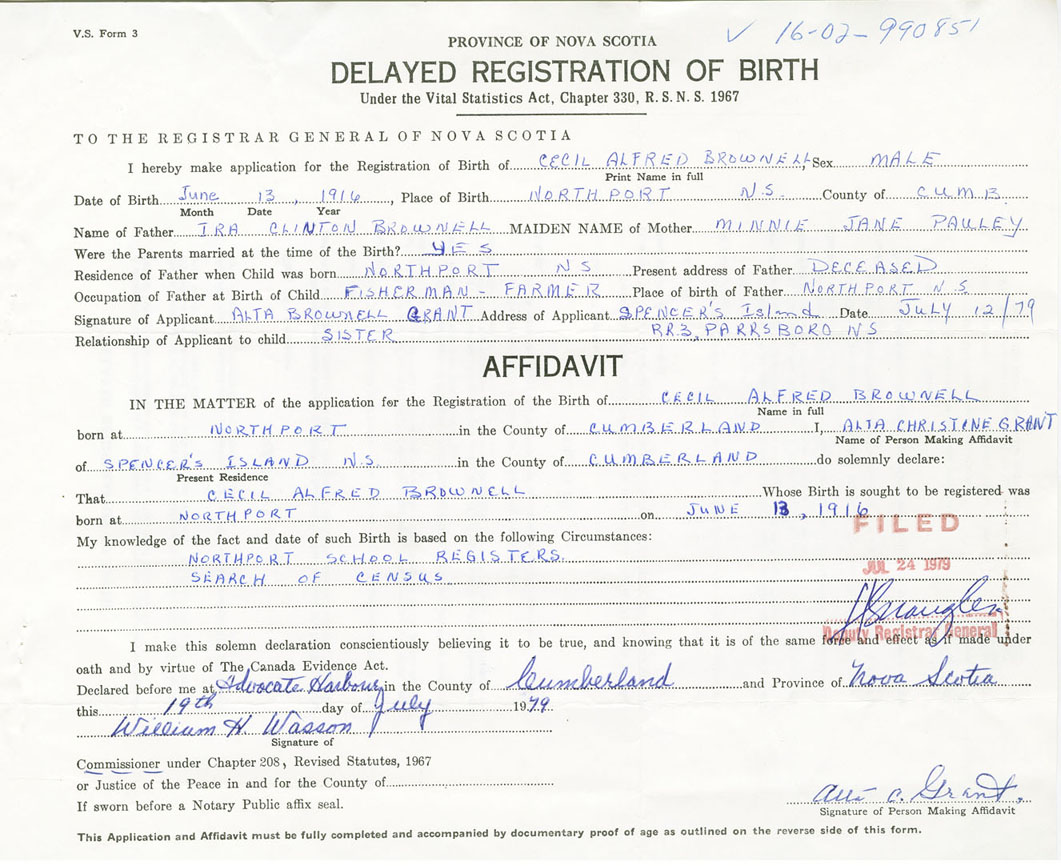 V.S. Form 3
✓ 16-02-990851
PROVINCE OF NOVA SCOTIA
DELAYED REGISTRATION OF BIRTH
Under the Vital Statistics Act, Chapter 330, R. S. N. S. 1967
TO THE REGISTRAR GENERAL OF NOVA SCOTIA
I hereby make application for the Registration of Birth of CECIL ALFRED BROWNELL, Sex MALE
Print Name in full
Date of Birth June 13, 1916, Place of Birth NORTHPORT N.S. County of CUMB.
Month Date Year
Name of Father IRA CLINTON BROWNELL MAIDEN NAME of Mother MINNIE JANE PAULEY
Were the Parents married at the time of the Birth? YES
Residence of Father when Child was born NORTHPORT NS Present address of Father DECEASED
Occupation of Father at Birth of Child FISHERMAN - FARMER Place of birth of Father NORTHPORT N S
Signature of Applicant ALTA BROWNELL GRANT Address of Applicant SPENCER'S Island Date JULY 12/79
Relationship of Applicant to child SISTER RR3, PARRSBORO NS
AFFIDAVIT
IN THE MATTER of the application for the Registration of the Birth of CECIL ALFRED BROWNELL
Name in full
born at NORTHPORT in the County of CUMBERLAND I, ALTA CHRISTINE GRANT
Name of Person Making Affidavit
of SPENCER'S ISLAND N.S. in the County of CUMBERLAND do solemnly declare:
Present Residence
That CECIL ALFRED BROWNELL Whose Birth is sought to be registered was
born at NORTHPORT on JUNE 13, 1916
FILED
My knowledge of the fact and date of such Birth is based on the following Circumstances:
NORTHPORT SCHOOL REGISTERS.
JUL 24 1979
SEARCH OF CENSUS
Deputy Registrar General
I make this solemn declaration conscientiously believing it to be true, and knowing that it is of the same force and effect as if made under
oath and by virtue of The Canada Evidence Act.
Declared before me at Advocate Harbour in the County of Cumberland and Province of Nova Scotia
this 19th day of July 1979.
William H. Wasson
Signature of
Commissioner under Chapter 208, Revised Statutes, 1967
or Justice of the Peace in and for the County of
If sworn before a Notary Public affix seal.
C. Grant.
Signature of Person Making Affidavit
This Application and Affidavit must be fully completed and accompanied by documentary proof of age as outlined on the reverse side of this form.